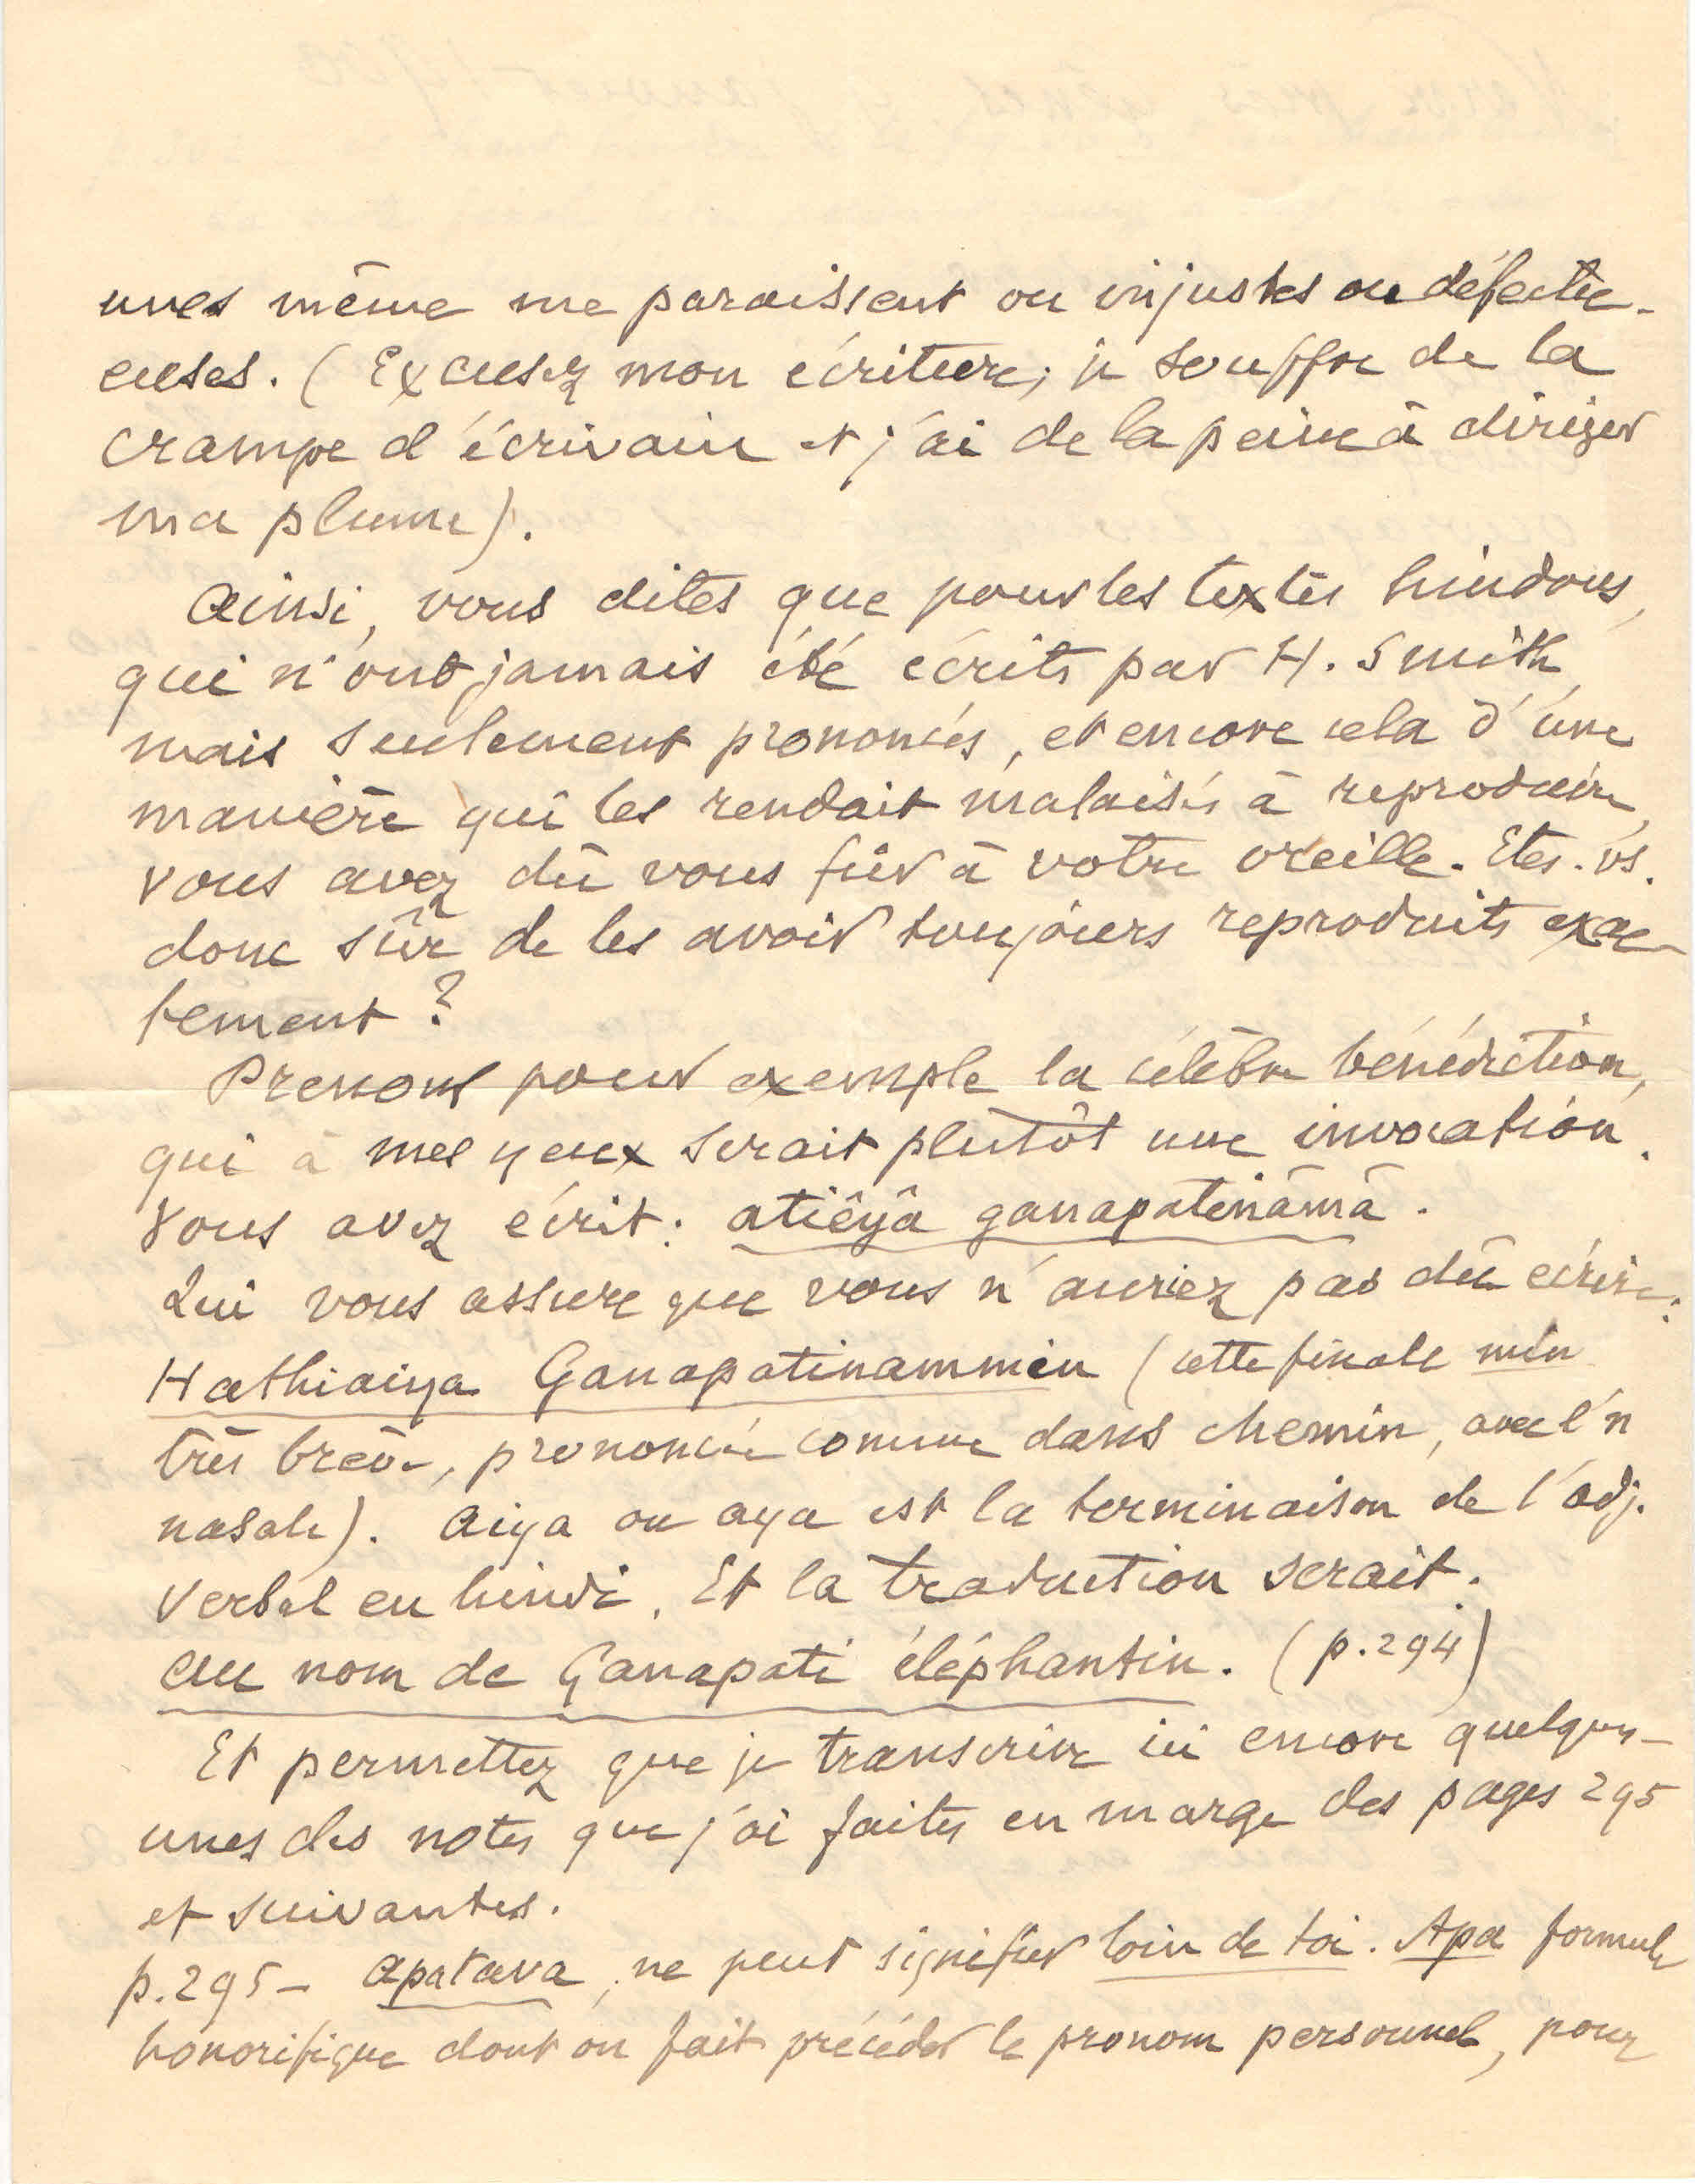 unes même me paraissent ou injustes ou défectu-
euses. (Excusez mon écriture; je souffre de la
crampe d'écrivain et j'ai de la peine à diriger
ma plume).
Ainsi, vous dites que pour les textes hindous,
qui n'ont jamais été écrits par H. Smith,
mais seulement prononcés, et encore cela d'une
manière qui les rendait malaisés à reproduire,
vous avez dû vous fier à votre oreille. Etes-vs.
donc sûr de les avoir toujours reproduits exac-
tement?
Prenons pour exemple la célèbre bénédiction,
qui à mes yeux serait plutôt une invocation.
Vous avez écrit: atiêyâ ganapatinâmâ.
Qui vous assure que vous n'auriez pas dû écrire:
Hathiaiya Ganapatinammin (cette finale min
très brève, prononcée comme dans chemin, avec l'n
nasale). Aiya ou aya est la terminaison de l'adj.
verbal en hindi. Et la traduction serait:
au nom de Ganapati éléphantin. (p. 294)
Et permettez que je transcrive ici encore quelques-
unes des notes que j'ai faites en marge des pages 295
et suivantes.
p. 295 - apatava, ne peut signifier loin de toi. Apa formule
honorifique dont on fait précéder le pronom personnel, pour